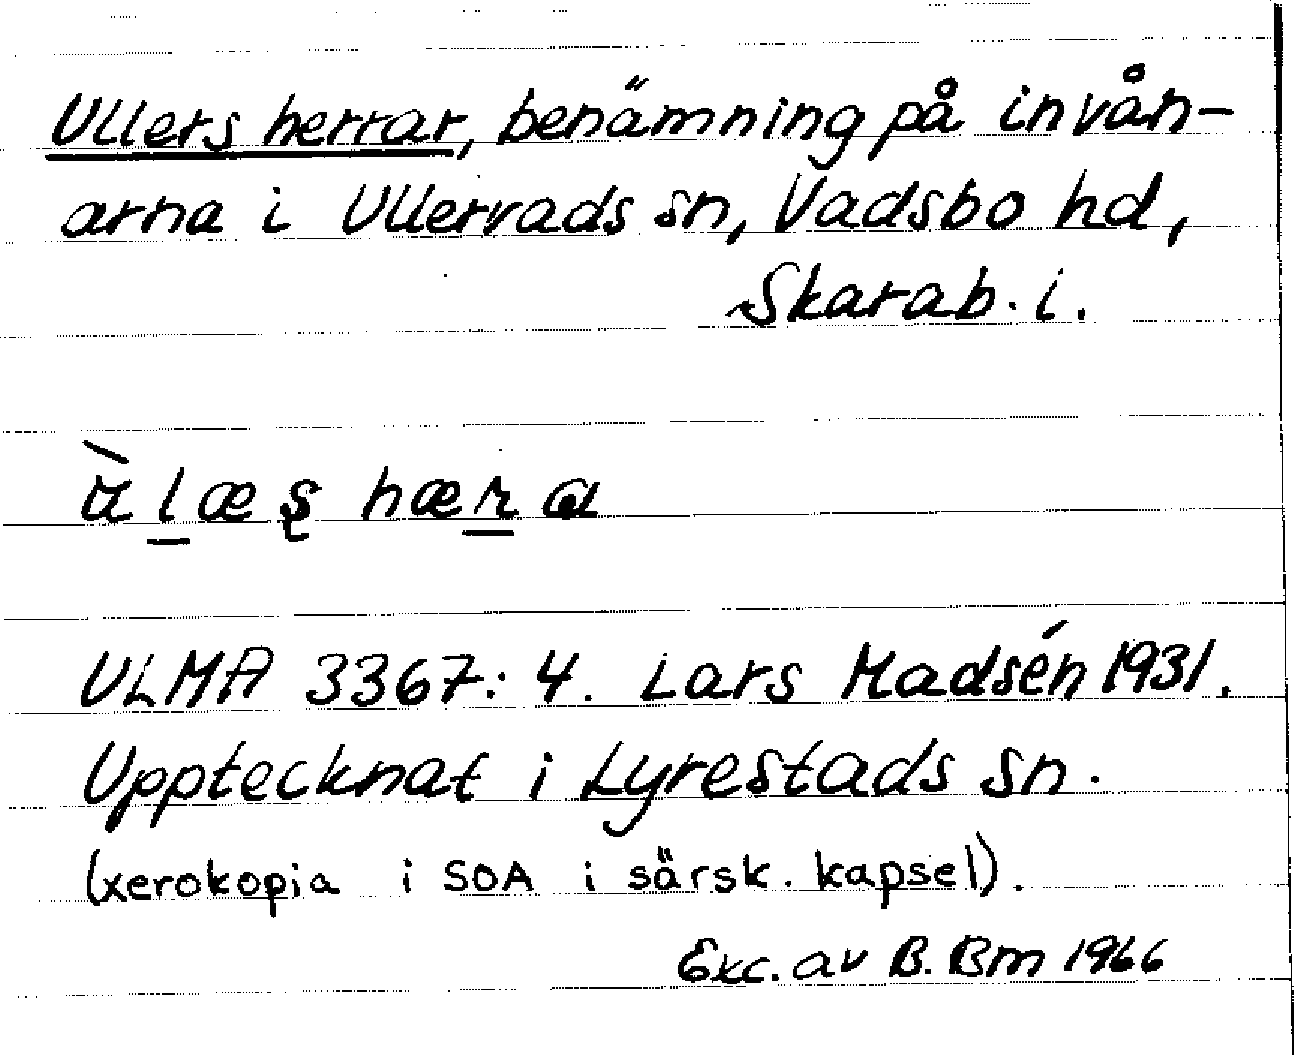 Ullers herrar, benämning på invån-
arna i Ullervads sn, Vadsbo hd,
Skarab. i.
ùlæʂ hæra
ULMA 3367:4. Lars Madsén 1931.
Upptecknat i Lyrestads sn.
(xerokopia i SOA i särsk. kapsel).
Exc. av B. Bm 1966